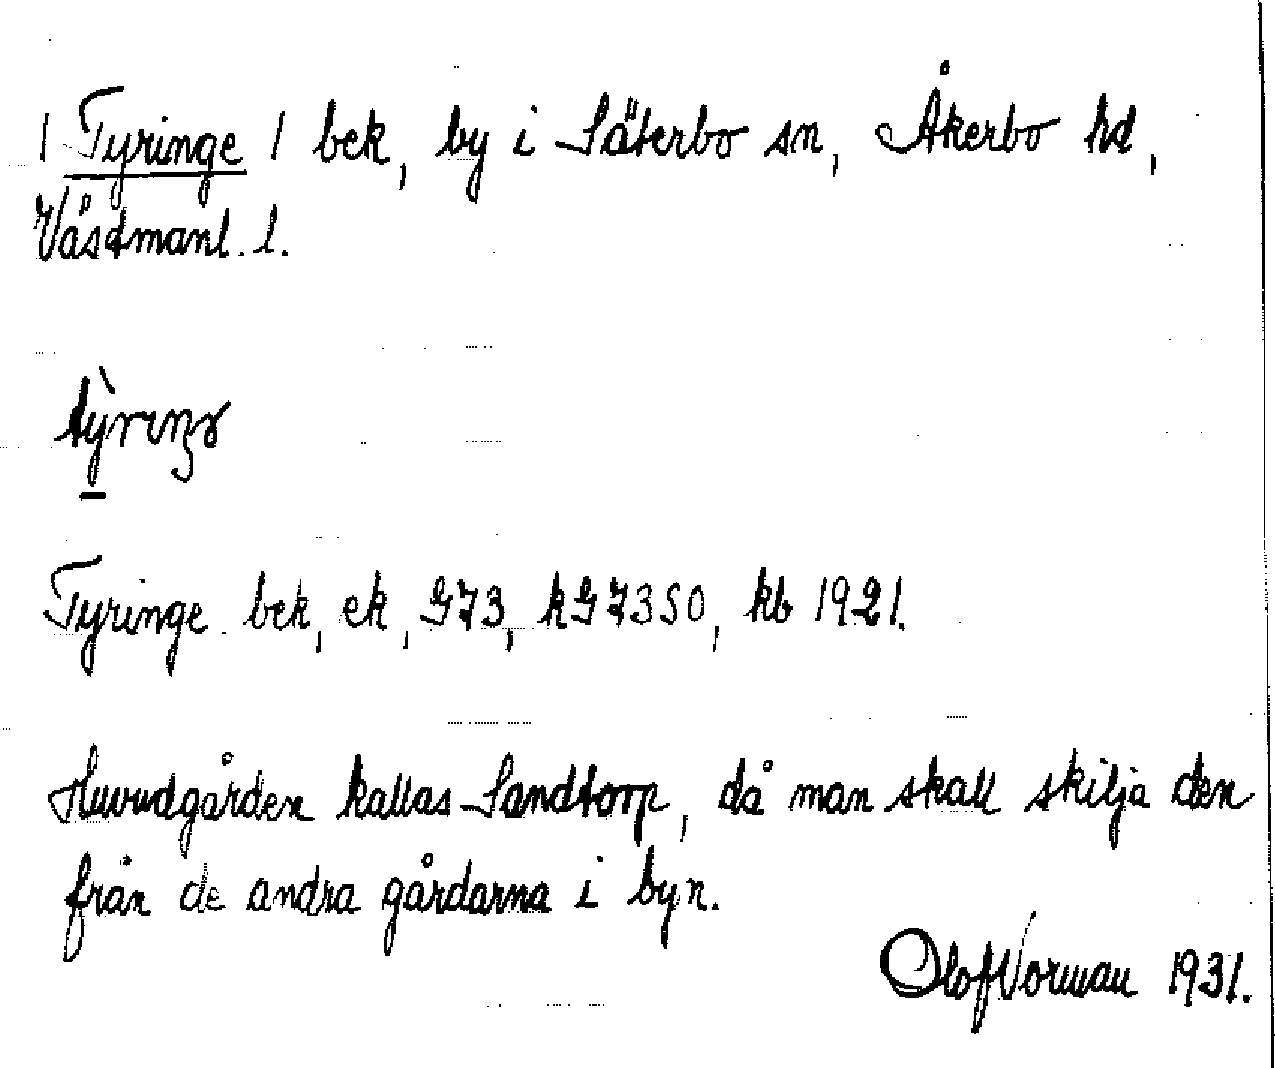 / Tyringe / bek, by i Säterbo sn, Åkerbo hd,
Våsdmanl. l.
Tyringe bek, ek, G73, kG7350, kb 1921.
Huvudgården kallas Sandtorp, då man skall skilja den
från de andra gårdarna i byn.
Olof Vorman 1931.